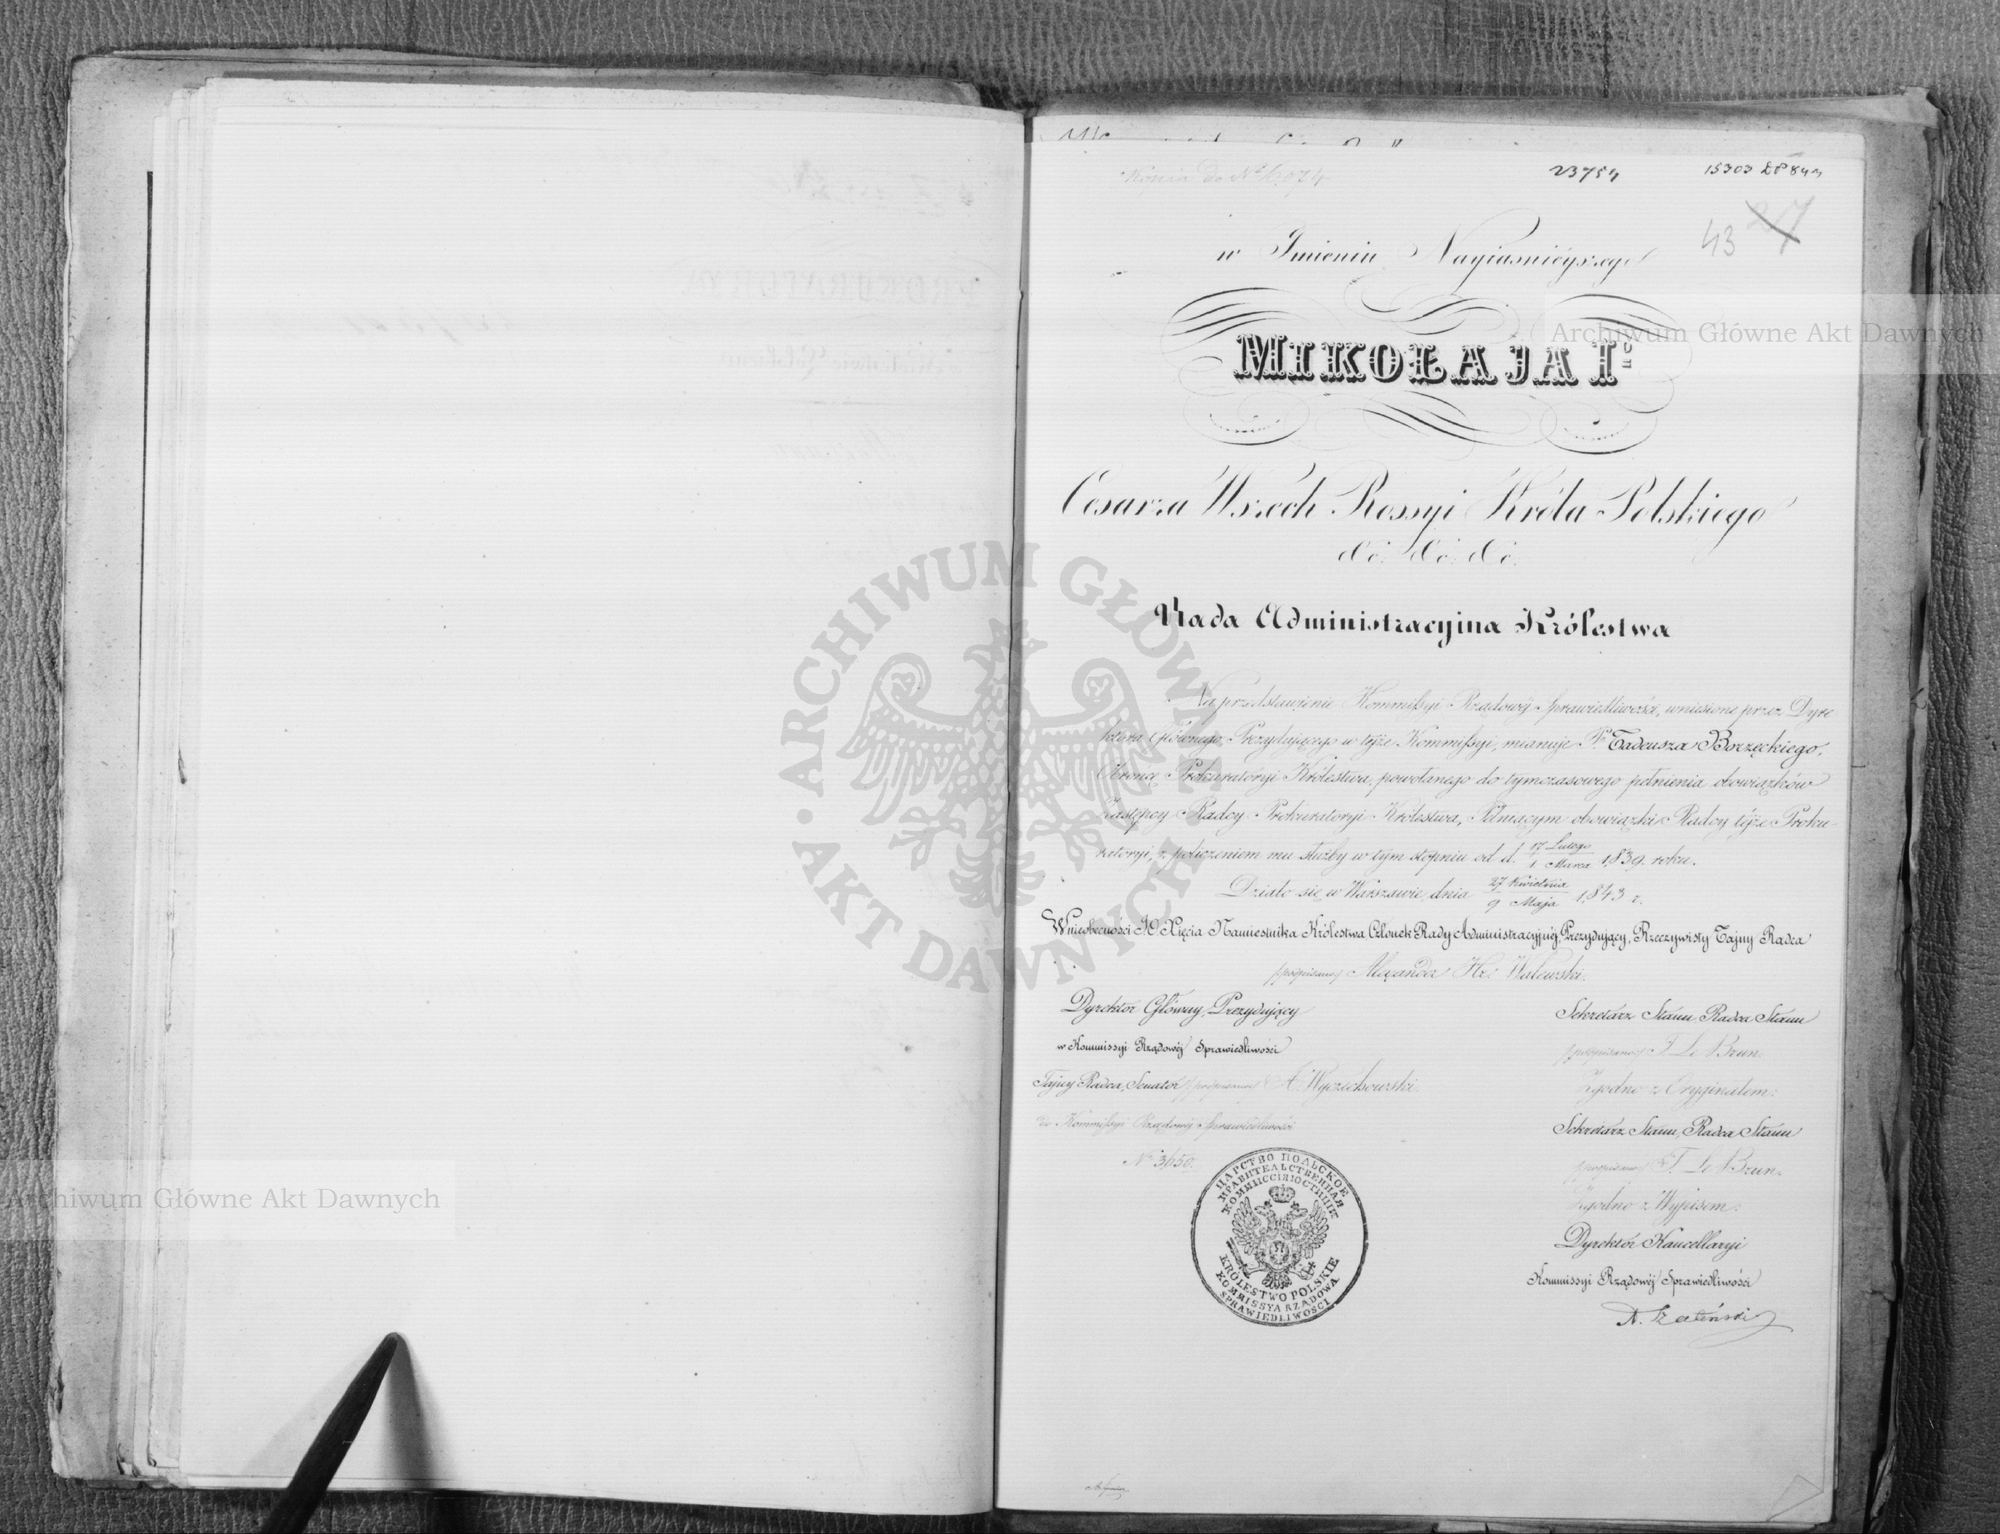 Kopia do Nº 13074
23754
15303 DP 843
43 27
w Imieniu Nayiaśnieyszego
MIKOŁAJA Igo
Cesarza Wszech Rossyi Króla Polskiego
&c. &c. &c.
Rada Administracyina Królestwa
Na przedstawienie Kommissyi Rządowéj Sprawiedliwości, wniesione przez Dyre-
ktora Głównego, Prezydującego w tejże Kommissyi, mianuje P. Tadeusza Brzęckiego,
Obrońcę Prokuratoryi Królestwa, powołanego do tymczasowego pełnienia obowiązków
Zastępcy Radcy Prokuratoryi Królestwa, Pełniącym obowiązki Radcy téjże Proku-
ratoryi, z policzeniem mu służby w tym stopniu od d. 17 Lutego / 1 Marca 1839. roku.
Działo się w Warszawie, dnia 27 Kwietnia / 9 Maja 1843 r.
W nieobecności JO. Xięcia Namiestnika Królestwa Członek Rady Administracyjnéj Prezydujący, Rzeczywisty Tajny Radca
(podpisano) Alexander Hr: Walewski.
Dyrektór Główny, Prezydujący
w Kommissyi Rządowéj Sprawiedliwości
Tajny Radca, Senator (podpisano) A. Wyczechowski.
do Kommissyi Rządowéj Sprawiedliwości
Nr 3,650.
Sekretarz Stanu Radca Stanu
(podpisano) J. Le Brun.
Zgodno z Oryginałem:
Sekretarz Stanu, Radca Stanu
(podpisano) J. Le Brun.
Zgodno z Wypisem:
Dyrektór Kancellaryi
Kommissyi Rządowéj Sprawiedliwości
ЦАРСТВО ПОЛЬСКОЕ
ПРАВИТЕЛЬСТВЕННАЯ
КОММИССІЯ ЮСТИЦІИ
KRÓLESTWO POLSKIE
KOMMISSYA RZĄDOWA
SPRAWIEDLIWOŚCI
ARCHIWUM GŁÓWNE AKT DAWNYCH
Archiwum Główne Akt Dawnych
Archiwum Główne Akt Dawnych